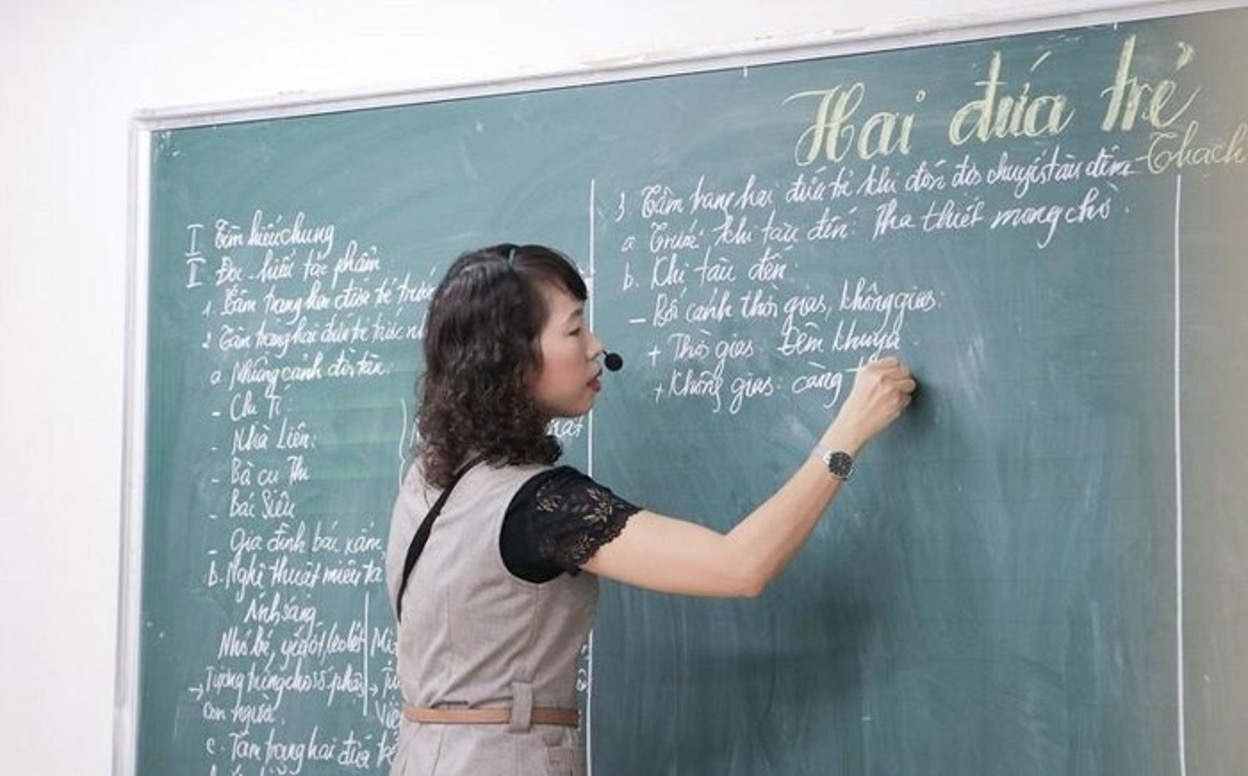 Hai đứa trẻ
- Thạch
I Tìm hiểu chung
II Đọc - hiểu tác phẩm
1. Tâm trạng hai đứa trẻ trước
2. Tâm trạng hai đứa trẻ trước
a. Những cảnh đời tàn.
- Chị Tí
- Nhà Liên.
- Bà cụ Thi
- Bác Siêu
- Gia đình bác xẩm
b. Nghệ thuật miêu tả
Ánh sáng
Nhỏ bé, yếu ớt, leo lét
→ Tượng trưng cho số phận →
con người.
c. Tâm trạng hai đứa trẻ
3. Tâm trạng hai đứa trẻ khi đón đợi chuyến tàu đêm
a. Trước khi tàu đến: Tha thiết mong chờ.
b. Khi tàu đến.
- Bối cảnh thời gian, không gian:
+ Thời gian: Đêm khuya
+ Không gian: càng